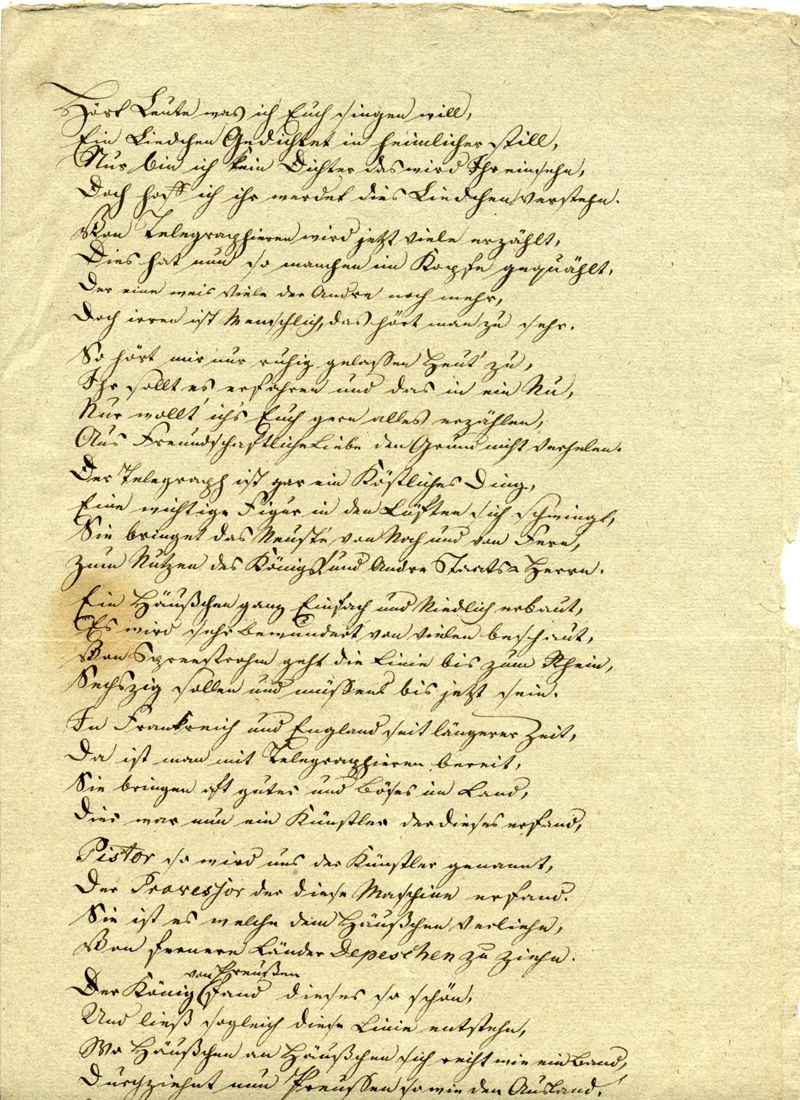 Hört Leute was ich Euch singen will,
Ein Liedchen Gedichtet in heimlicher still,
Nur bin ich kein Dichter das wird Ihr einsehn,
Doch hoff ich ihr werdet dies Liedchen verstehn.
Von Telegraphieren wird jetzt viele erzählt,
Dies hat nun so manchen im Kopfe gequählt,
Der eine weis viele der Andre noch mehr,
Doch irren ist Menschlich, das hört man zu sehr.
So hört mir nur ruhig gelassen heut' zu,
Ihr sollt es erfahren und das in ein Nu,
Nur wollt' ichs Euch gern alles erzählen,
Aus Freundschaftliche Liebe den Grund nicht verhelen.
Der Telegraph ist gar ein Köstliches Ding,
Eine wichtige Figur in den Lüften sich schwingt,
Sie bringet das Neuste von Nah und von Fern,
Zum Nutzen des Königs und Andre Staats=Herrn.
Ein Häußchen ganz Einfach und Niedlich erbaut,
Es wird sehr bewundert von vielen beschaut,
Von Spreestrohm geht die Linie bis zum Rhein,
Sechszig sollen und müssens bis jetzt sein.
In Frankreich und England seit längerer Zeit,
Da ist man mit Telegraphieren bereit,
Sie bringen oft gutes und böses im Land,
Dies war nun ein Künstler der dieses erfand,
Pistor so wird uns der Künstler genannt,
Der Provessor der diese Maschine erfand.
Sie ist es welche dem Häußchen verliehn,
Von fernere Länder Depeschen zu ziehn.
Der König von Preußen fand dieses so schön,
Und ließ sogleich diese Linie entstehn,
Wo Häußchen an Häußchen sich reiht wie ein Band,
Durchziehnt nun Preussen so wie den Ausland.